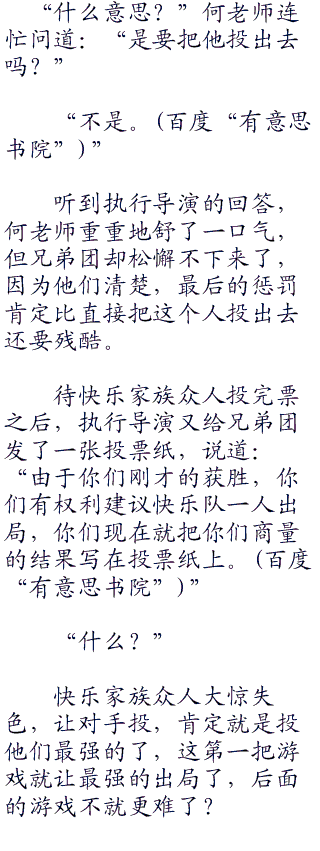 “什么意思？”何老师连
忙问道：“是要把他投出去
吗？”
“不是。(百度“有意思
书院”)”
听到执行导演的回答，
何老师重重地舒了一口气，
但兄弟团却松懈不下来了，
因为他们清楚，最后的惩罚
肯定比直接把这个人投出去
还要残酷。
待快乐家族众人投完票
之后，执行导演又给兄弟团
发了一张投票纸，说道：
“由于你们刚才的获胜，你
们有权利建议快乐队一人出
局，你们现在就把你们商量
的结果写在投票纸上。(百度
“有意思书院”)”
“什么？”
快乐家族众人大惊失
色，让对手投，肯定就是投
他们最强的了，这第一把游
戏就让最强的出局了，后面
的游戏不就更难了？